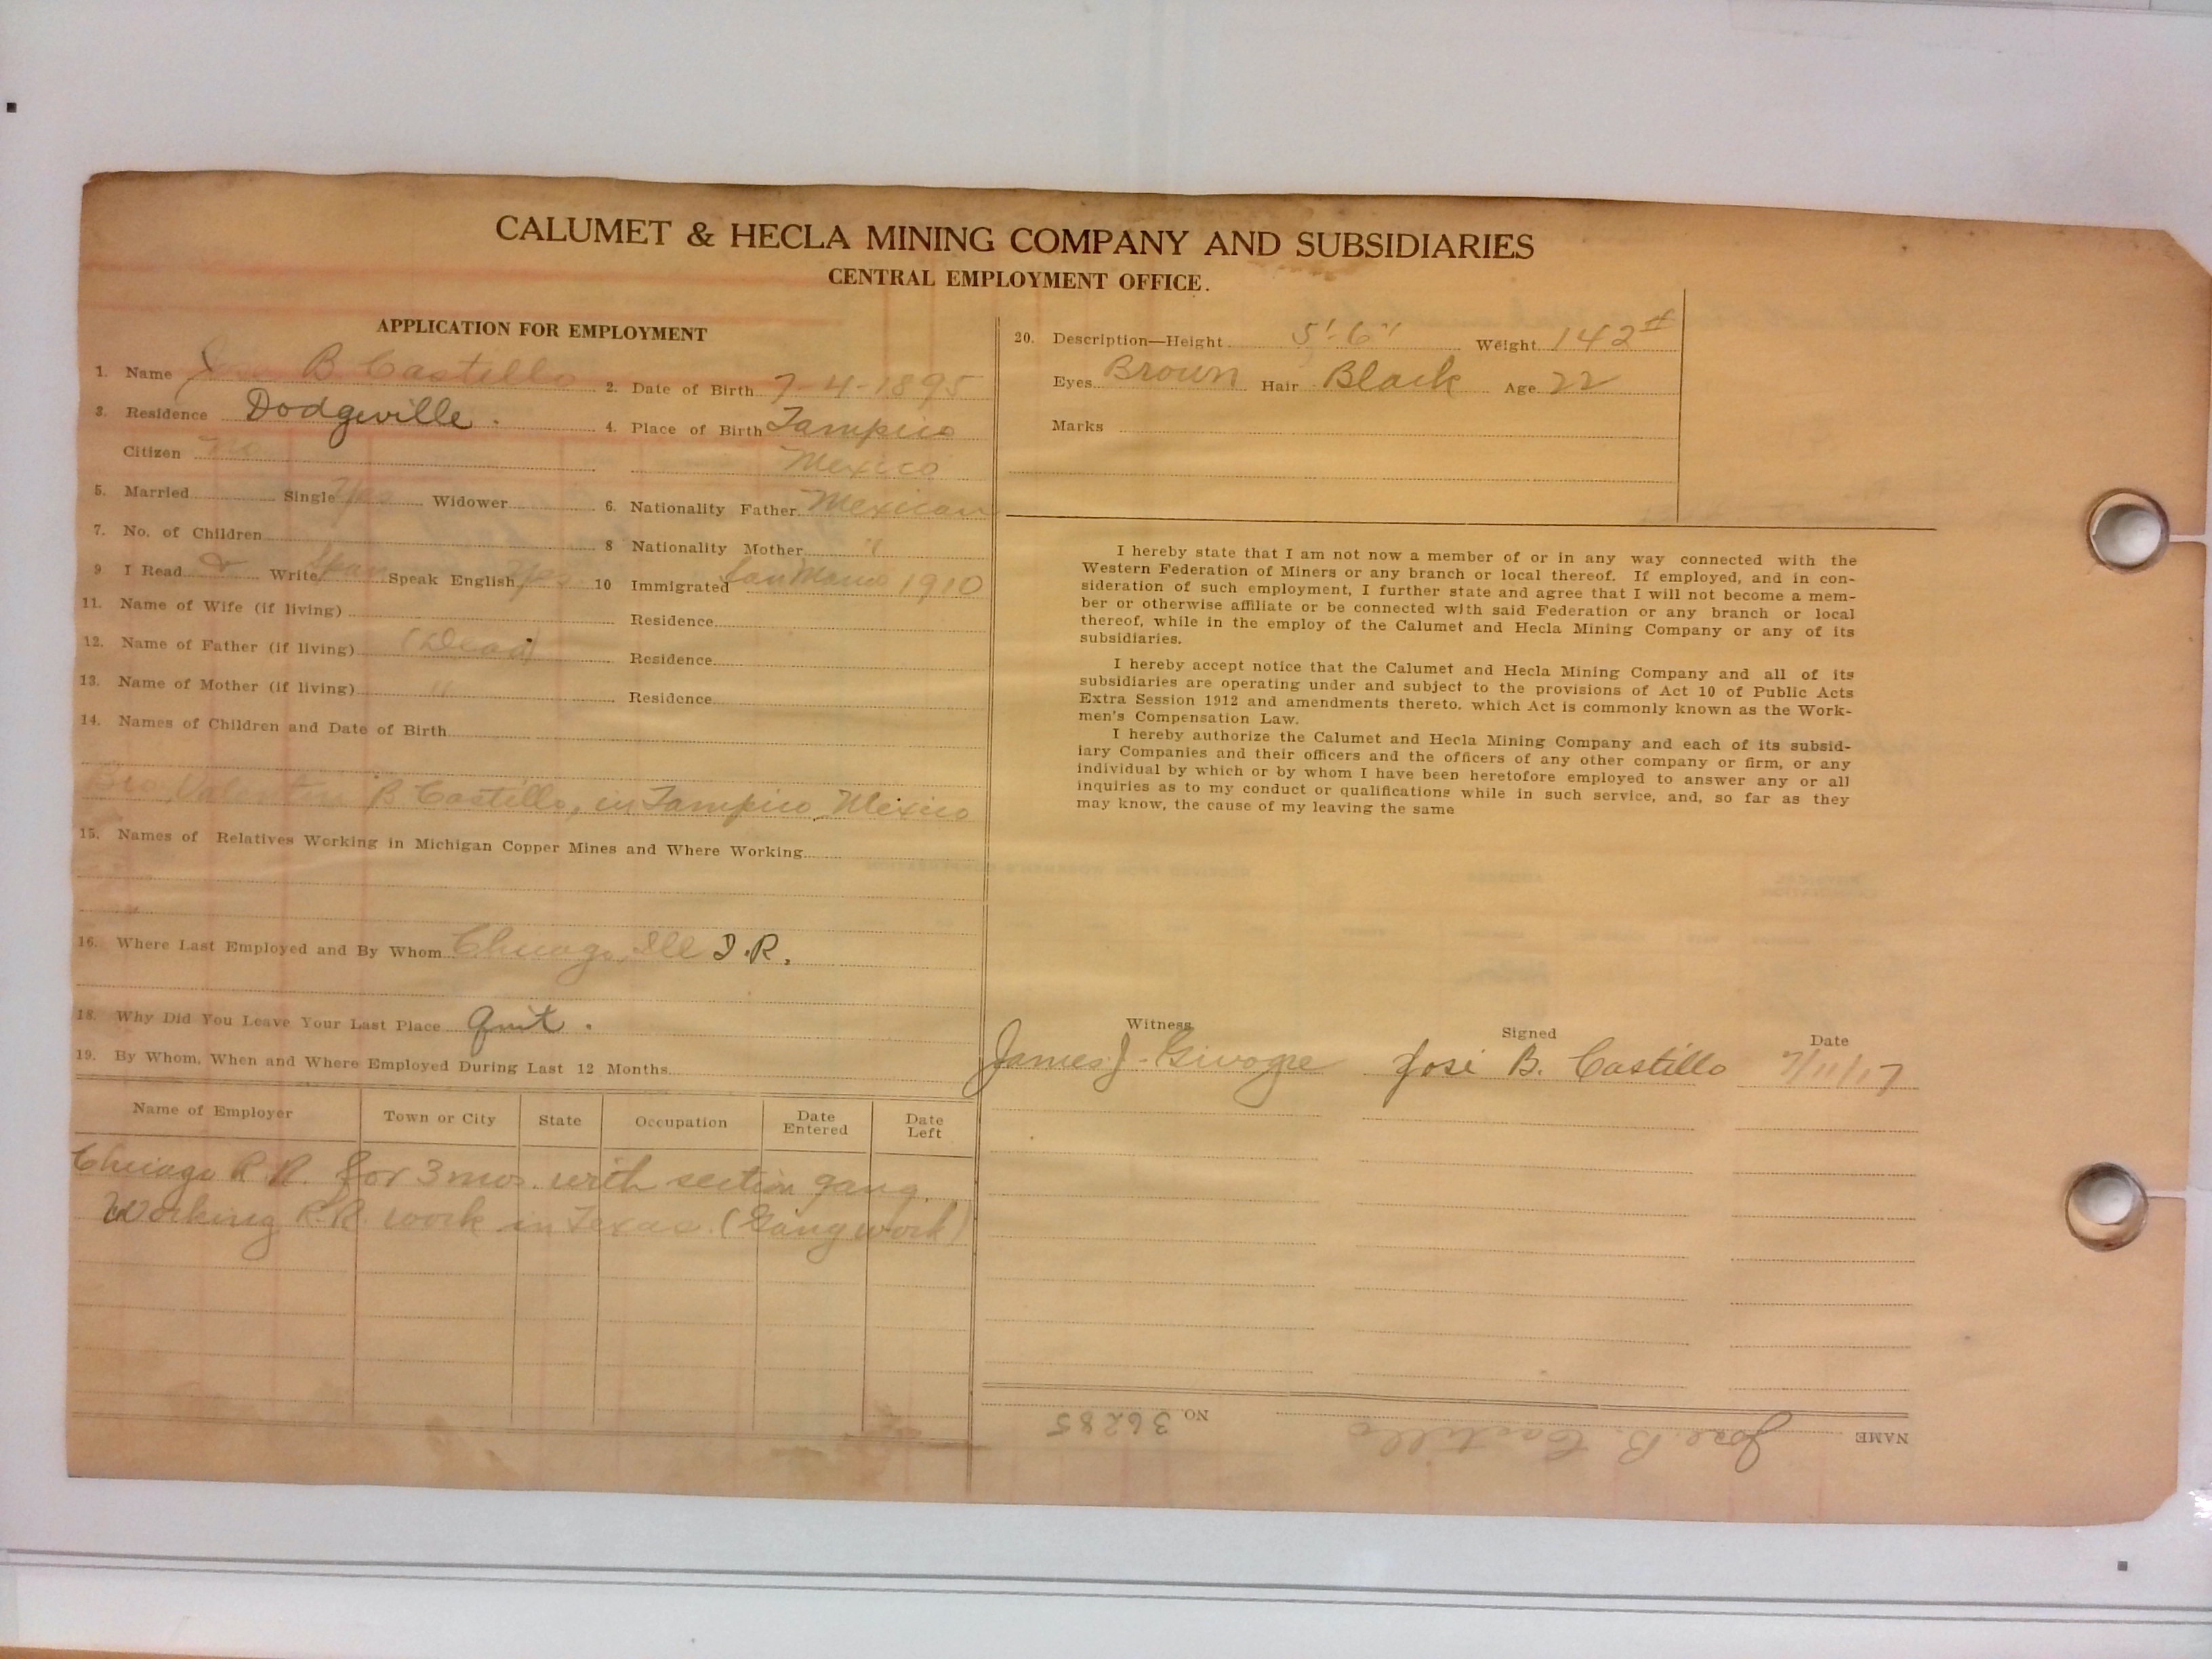 CALUMET & HECLA MINING COMPANY AND SUBSIDIARIES
CENTRAL EMPLOYMENT OFFICE.
APPLICATION FOR EMPLOYMENT
1. Name Jose B. Castillo 2. Date of Birth 7-4-1895
3. Residence Dodgeville. 4. Place of Birth Tampico
Citizen No Mexico
5. Married Single Yes Widower 6. Nationality Father Mexican
7. No. of Children 8 Nationality Mother "
9 I Read & Write Span Speak English Yes 10 Immigrated 1910
11. Name of Wife (if living) Residence
12. Name of Father (if living) (Dead) Residence
13. Name of Mother (if living) " Residence
14. Names of Children and Date of Birth
Bro. Valentin B Castillo, in Tampico Mexico
15. Names of Relatives Working in Michigan Copper Mines and Where Working
16. Where Last Employed and By Whom Chicago Ill I.R.
18. Why Did You Leave Your Last Place Quit.
19. By Whom, When and Where Employed During Last 12 Months
Name of Employer Town or City State Occupation Date Entered Date Left
Chicago R.R. for 3 mos. with section gang.
Working R.R. work in Texas. (Gang work)
20. Description—Height 5'-6" Weight 142#
Eyes Brown Hair Black Age 22
Marks
I hereby state that I am not now a member of or in any way connected with the
Western Federation of Miners or any branch or local thereof. If employed, and in con-
sideration of such employment, I further state and agree that I will not become a mem-
ber or otherwise affiliate or be connected with said Federation or any branch or local
thereof, while in the employ of the Calumet and Hecla Mining Company or any of its
subsidiaries.
I hereby accept notice that the Calumet and Hecla Mining Company and all of its
subsidiaries are operating under and subject to the provisions of Act 10 of Public Acts
Extra Session 1912 and amendments thereto, which Act is commonly known as the Work-
men's Compensation Law.
I hereby authorize the Calumet and Hecla Mining Company and each of its subsid-
iary Companies and their officers and the officers of any other company or firm, or any
individual by which or by whom I have been heretofore employed to answer any or all
inquiries as to my conduct or qualifications while in such service, and, so far as they
may know, the cause of my leaving the same
Witness Signed Date
James J. Givogre José B. Castillo 7/11/17
NAME Jose B. Castillo NO. 36285